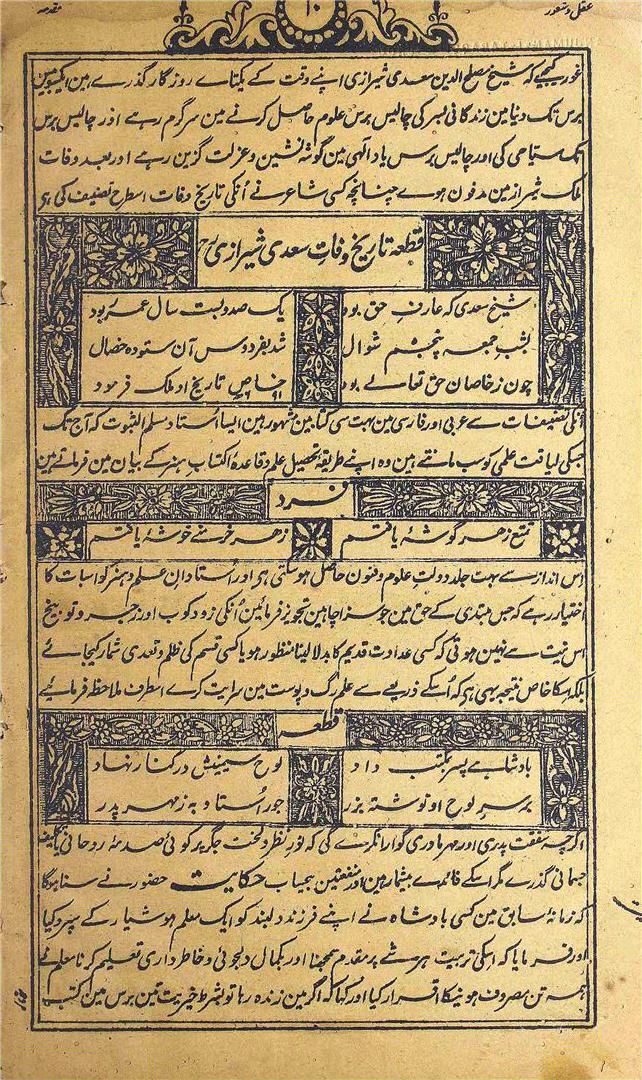 عقل و شعور
۱۰
مقدمہ
غور کیجیے کہ شیخ مصلح الدین سعدی شیرازی اپنے وقت کے یکتاے روزگار گذرے ہین ایکسوبیس
برس تک دنیا مین زندگانی بسر کی چالیس برس علوم حاصل کرنے مین سرگرم رہے اور چالیس برس
تک سیاحی کی اور چالیس برس یاد الٰہی مین گوشہ نشین و عزلت گزین رہے اور بعد وفات
ملک شیراز مین مدفون ہوے چنانچہ کسی شاعر نے اُنکی تاریخ وفات اسطرح تصنیف کی ہی
قطعہ تاریخ وفات سعدی شیرازی رح
شیخ سعدی کہ عارف حق بود یک صد و بست سال عمرے بود
بشب جمعہ پنجم شوال شد بفردوس آن ستودہ خصال
چون ز خاصان حق تعالے بود خاص تاریخ او ملک فرمود
انکی تصنیفات سے عربی اور فارسی مین بہت سی کتابین مشہور ہین ایسا اُستاد مسلم الثبوت کہ آج تک
جسکی لیاقت علمی کو سب مانتے ہین وہ اپنے طریقۂ تحصیل علم و قاعدۂ اکتساب ہنر کے بیان مین فرماتے ہین
فرد
تمتع ز ہر گوشۂ یافتم ز ہر خرمنے خوشۂ یافتم
اس انداز سے بہت جلد دولت علوم و فنون حاصل ہوسکتی ہی اور اُستادان علم و ہنر کو اس بات کا
اختیار رہے کہ جس مبتدی کے حق مین جو سزا چاہین تجویز فرمائین اُنکی زد و کوب اور زجر و توبیخ
اس نیت سے نہین ہوتی کہ کسی عداوت قدیم کا بدلا لینا منظور ہو یا کسی قسم کی ظلم و تعدی شمار کیجائے
بلکہ اسکا خاص نتیجہ یہی ہی کہ اُسکے ذریعے سے علم رگ و پوست مین سرایت کرے اسطرف ملاحظہ فرمائیے
قطعہ
بادشاہے پسر بمکتب داد لوح سیمینش در کنار نہاد
بر سر لوح او نوشتہ بزر جور اُستاد بہ ز مہر پدر
اگرچہ شفقت پدری اور مہر مادری گوارا نکرے گی کہ نور نظر و لخت جگر پر کوئی صدمۂ روحانی یا تکلیف
جسمانی گذرے مگر اسکے فائدے بیشمار ہین اور منفعتین بیحساب حکایت حضور نے سنا ہوگا
کہ زمانۂ سابق مین کسی بادشاہ نے اپنے فرزند دلبند کو ایک معلم ہوشیار کے سپرد کیا
اور فرمایا کہ اسکی تربیت ہر شے پر مقدم سمجھنا اور بکمال دلجوئی و خاطرداری تعلیم کرنا معلم نے
ہمہ تن مصروف ہونیکا اقرار کیا اور کہا کہ اگر مین زندہ رہا تو بشرط خیریت تین برس مین کتب